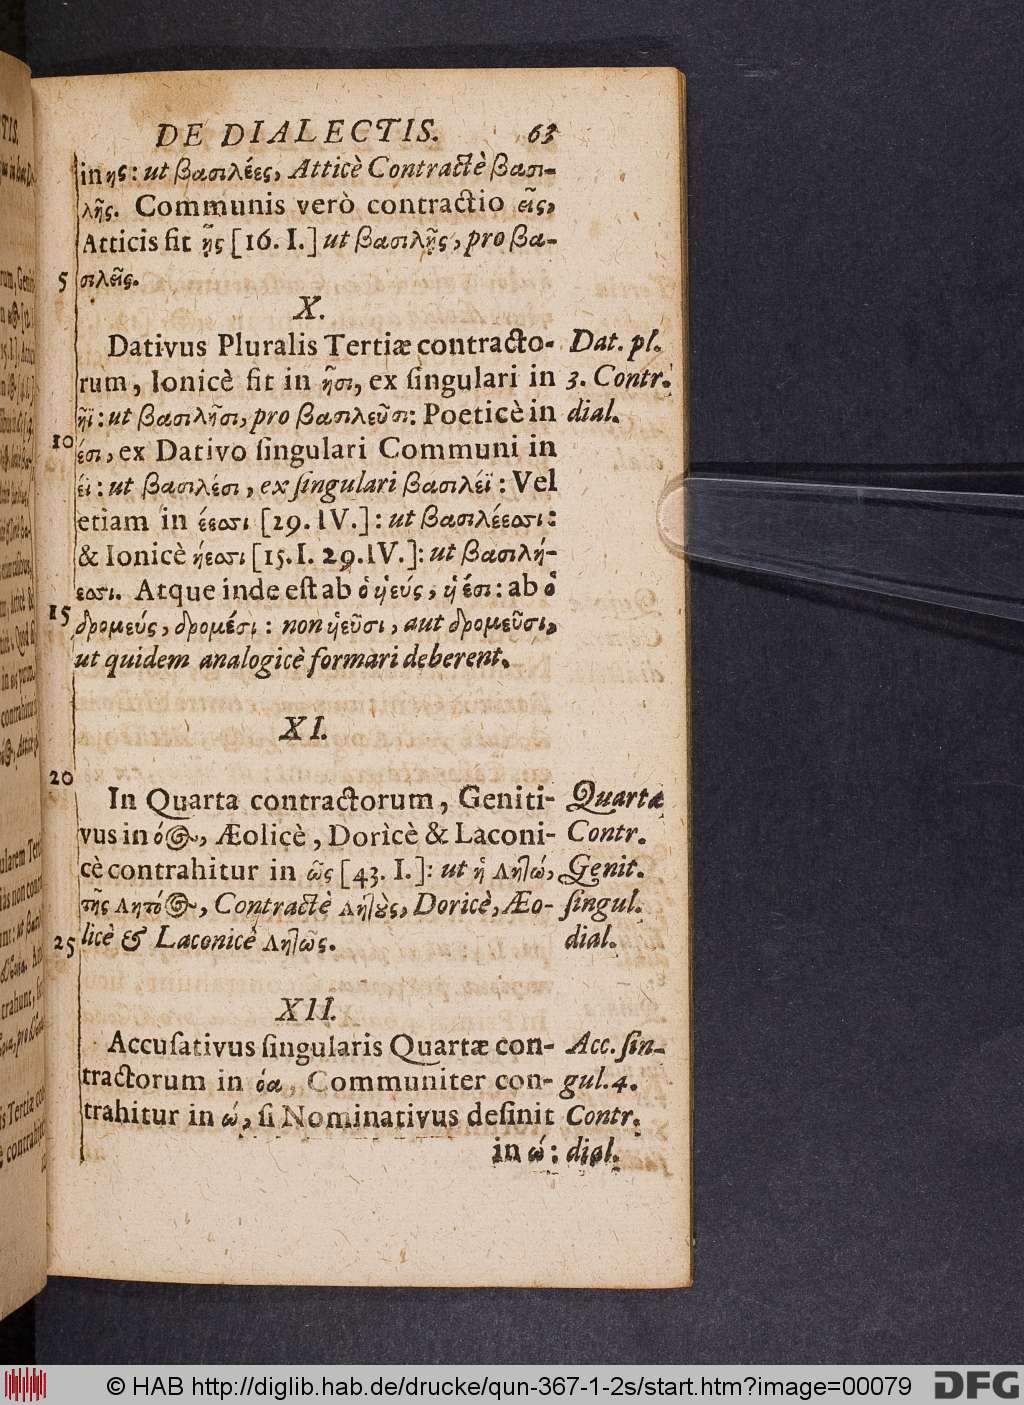 DE DIALECTIS. 63
in ης: ut βασιλέες, Atticè Contractè βασι-
λῆς. Communis verò contractio εῖς,
Atticis fit ῇς [16. I.] ut βασιλῇς, pro βα-
5 σιλεῖς.
X.
Dativus Pluralis Tertiæ contracto- Dat. pl.
rum, Ionicè fit in ῆσι, ex singulari in 3. Contr.
ῆϊ: ut βασιλῆσι, pro βασιλεῦσι: Poeticè in dial.
10 έσι, ex Dativo singulari Communi in
έϊ: ut βασιλέσι, ex singulari βασιλέϊ: Vel
etiam in έεασι [29. IV.]: ut βασιλέεασι:
& Ionicè ήεασι [15. I. 29. IV.]: ut βασιλή-
εασι. Atque inde est ab ὁ
15 δρομεύς, δρομέσι: non aut δρομεῦσι,
ut quidem analogicè formari deberent.
XI.
20
In Quarta contractorum, Geniti- Quartæ
vus in όος, Æolicè, Doricè & Laconi- Contr.
cè contrahitur in ῶς [43. I.]: ut ἡ Λητώ, Genit.
τῆς Λητόος, Contractè Λητȣ̃ς, Doricè, Æo- singul.
25 licè & Laconicè Λητῶς. dial.
XII.
Accusativus singularis Quartæ con- Acc. sin-
tractorum in όα, Communiter con- gul. 4.
trahitur in ώ, si Nominativus desinit Contr.
in ώ: dial.
© HAB http://diglib.hab.de/drucke/qun-367-1-2s/start.htm?image=00079 DFG